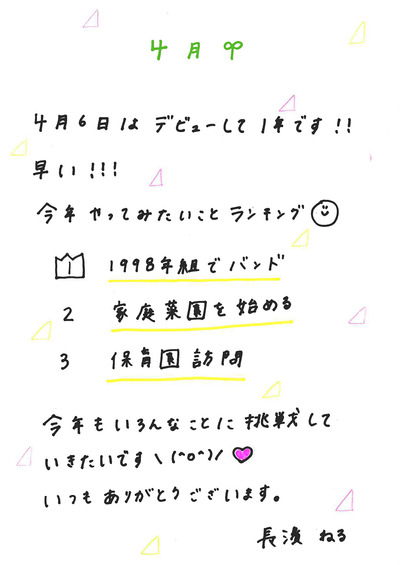 4月
4月6日は デビューして 1年です!!
早い!!!
今年 やってみたいこと ランキング
1 1998年組で バンド
2 家庭菜園を始める
3 保育園訪問
今年もいろんなことに挑戦して
いきたいです\(^o^)/
いつもありがとうございます。
長濱 ねる